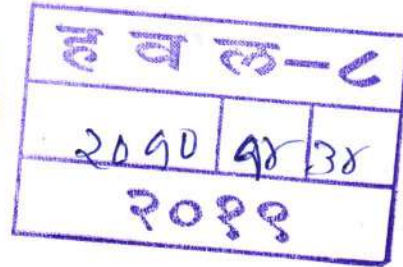 ह व ल-८
२०१० १४ ३४
२०११